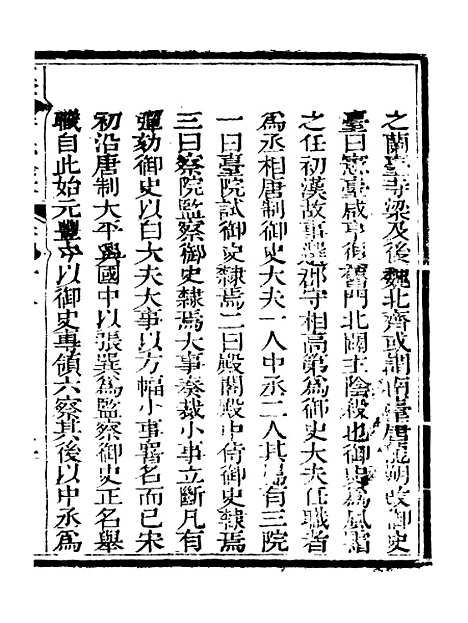 之蘭臺寺梁及後魏北齊或謂南臺唐龍朔改御史
臺曰憲臺咸亨復舊門北闢主陰殺也御史為風霜
之任初漢故事選郡守相高第為御史大夫任職者
為丞相唐制御史大夫一人中丞二人其屬有三院
一曰臺院試御史隸焉二曰殿閣殿中侍御史隸焉
三曰察院監察御史隸焉大事奏裁小事立斷凡有
彈劾御史以白大夫大事以方幅小事署名而已宋
初沿唐制大平興國中以張巽為監察御史正名舉
職自此始元豐中以御史專領六察其後以中丞為